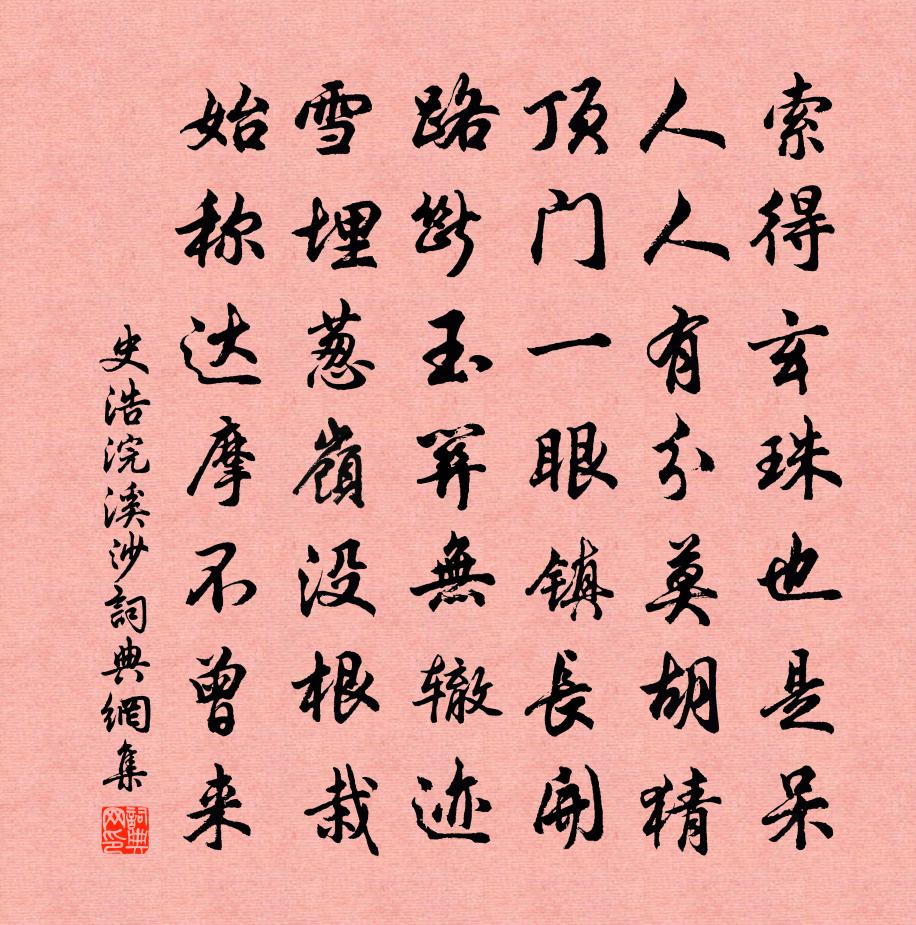 索得玄珠也是呆
人人有分莫胡猜
顶门一眼镇長開
路斷玉關無辙迹
雪埋葱嶺没根栽
始称达摩不曾来
史浩浣溪沙詞典網集
詞典网印